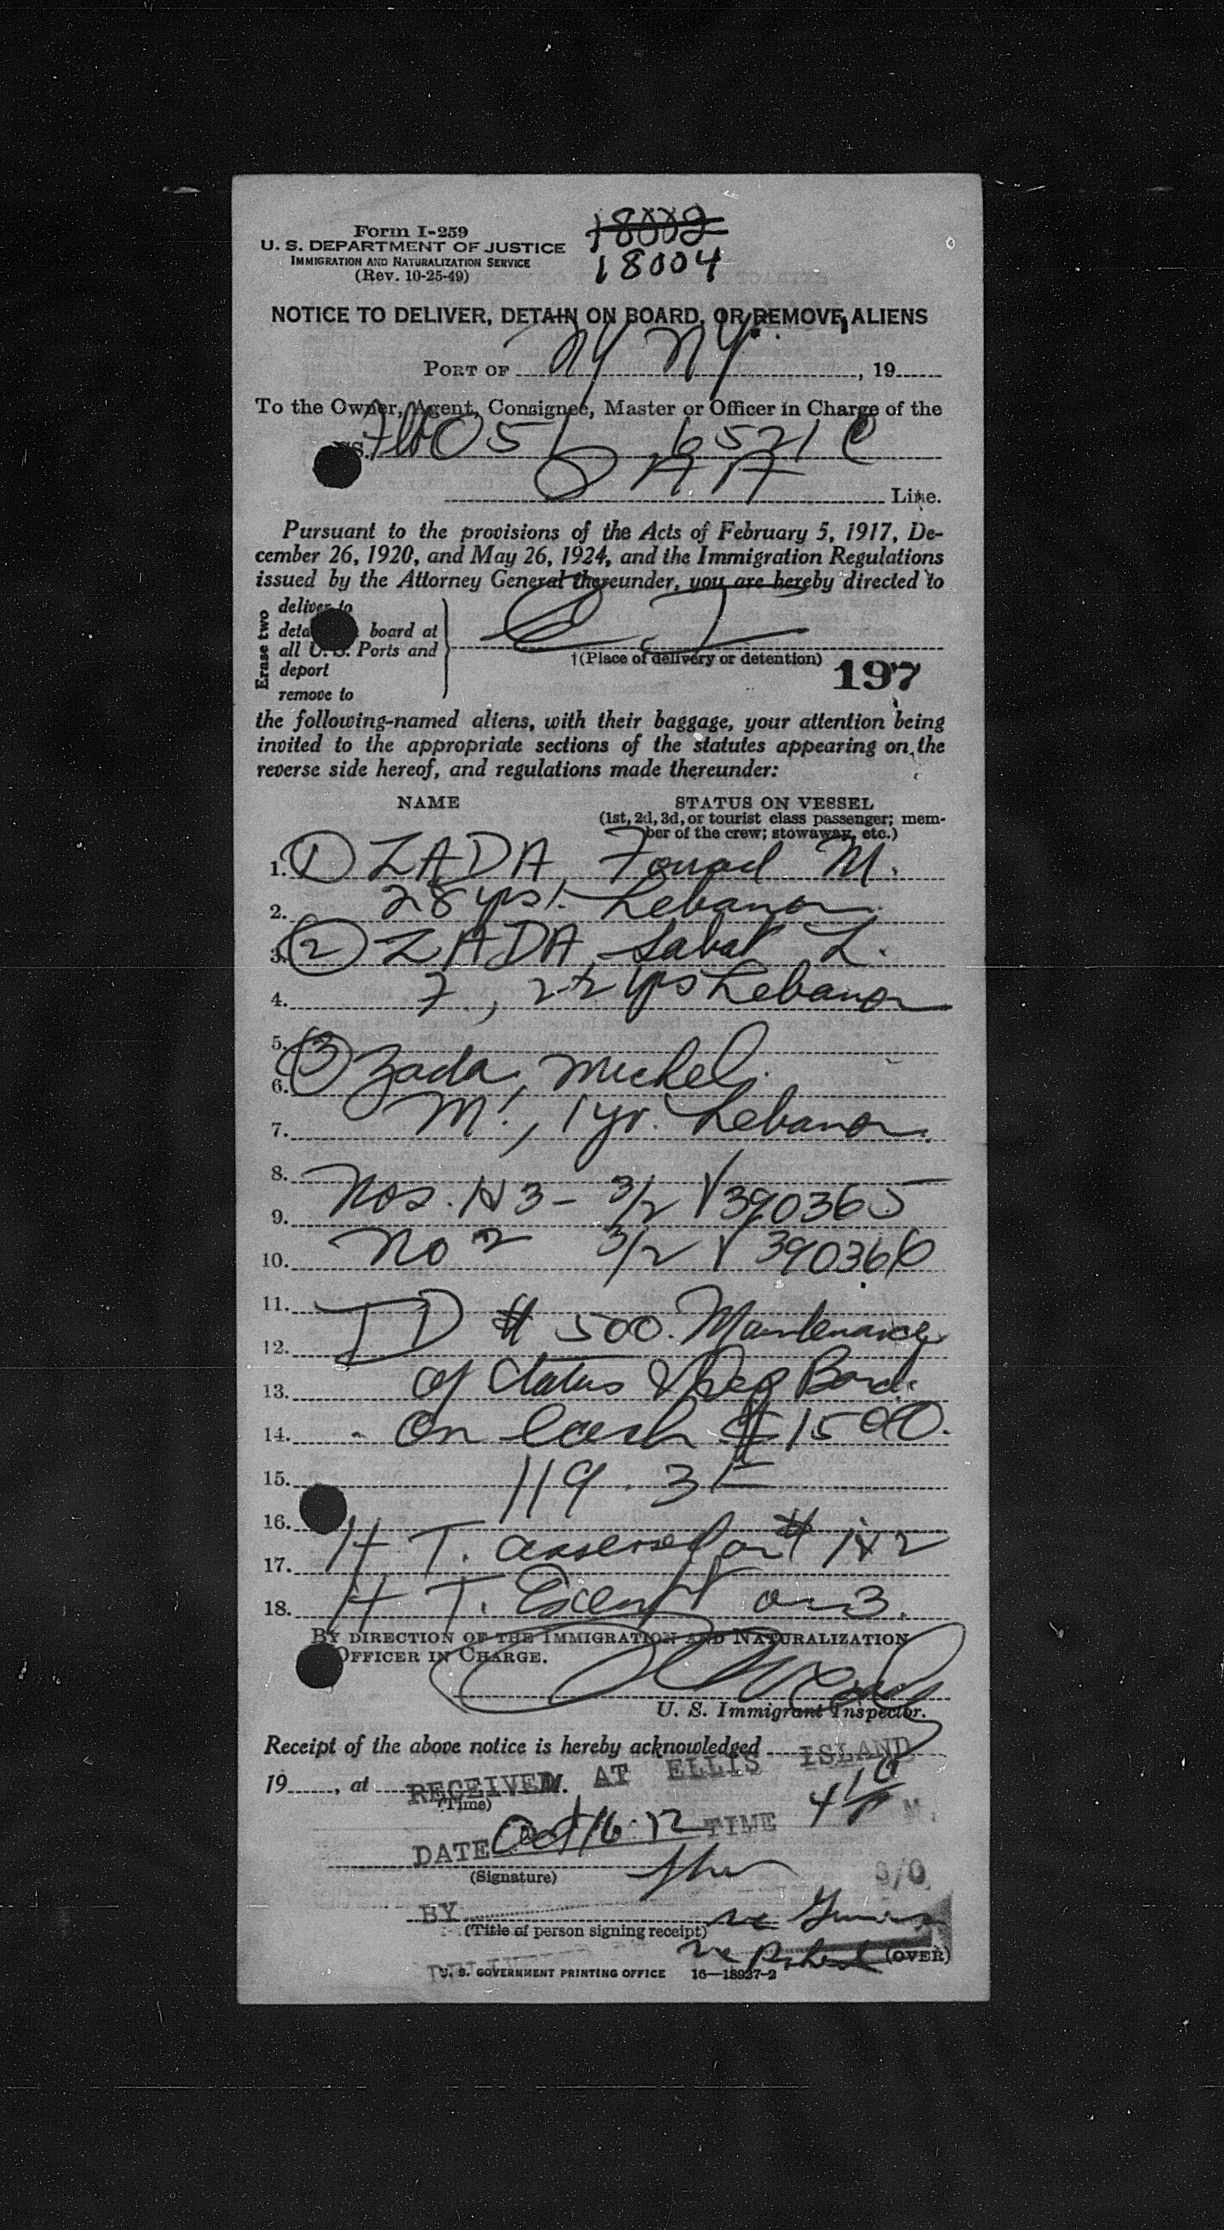 Form I-259
U. S. DEPARTMENT OF JUSTICE
IMMIGRATION AND NATURALIZATION SERVICE
(Rev. 10-25-49)
18002
18004
NOTICE TO DELIVER, DETAIN ON BOARD, OR REMOVE, ALIENS
PORT OF NY NY, 19
To the Owner, Agent, Consignee, Master or Officer in Charge of the
6521C
PAA Line.
Pursuant to the provisions of the Acts of February 5, 1917, De-
cember 26, 1920, and May 26, 1924, and the Immigration Regulations
issued by the Attorney General thereunder, you are hereby directed to
Erase two
deliver to
board at
all U. S. Ports and
deport
remove to
E. I.
†(Place of delivery or detention)
197
the following-named aliens, with their baggage, your attention being
invited to the appropriate sections of the statutes appearing on the
reverse side hereof, and regulations made thereunder:
NAME STATUS ON VESSEL
(1st, 2d, 3d, or tourist class passenger; mem-
ber of the crew; stowaway, etc.)
1. (1) ZADA, Fouad M.
2. 28 yrs. Lebanon
3. (2) ZADA, L.
4. F, 22 yrs Lebanon
5.
6. (3) Zada, Michel
7. M., 1 yr. Lebanon.
8.
9. Nos. 1 & 3 - 3/2 V390365
10. No 2 3/2 V 390366
11.
12. TD # 500. Maintenance
13. of Status & Dep Bond
14. on cash $1500.
15. 119.3
16.
17. H. T. assessed on # 1 & 2
18. H. T. Exempt on 3.
BY DIRECTION OF THE IMMIGRATION AND NATURALIZATION
OFFICER IN CHARGE.
U. S. Immigrant Inspector.
Receipt of the above notice is hereby acknowledged
19, at M.
(Time)
RECEIVED AT ELLIS ISLAND
DATE Oct 16 TIME M.
(Signature)
BY
(Title of person signing receipt)
(OVER)
U. S. GOVERNMENT PRINTING OFFICE 16—18937-2